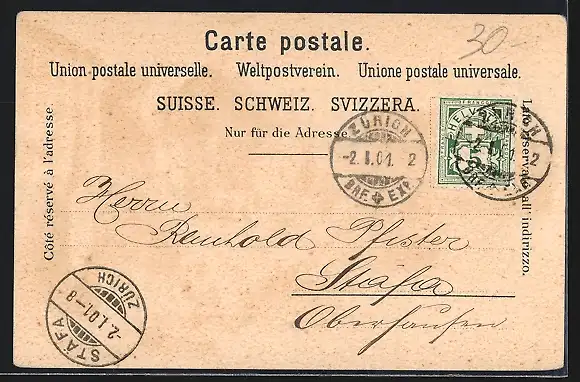 30-
Carte postale.
Union postale universelle. Weltpostverein. Unione postale universale.
SUISSE. SCHWEIZ. SVIZZERA.
Nur für die Adresse
Côté réservé à l'adresse.
Lato riservato all' indirizzo.
ZÜRICH
-2.I.01. 2
BRF. EXP.
HELVETIA
5
ZÜRICH
2
BRF. EXP.
Herrn
Reinhold Pfister
Stäfa
Oberhausen
STÄFA
-2.I.01.-8
ZÜRICH